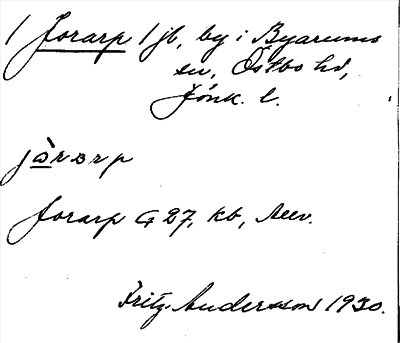 1 Jorarp 1 jb, by i Byarums
sn, Östbo hd,
Jönk. l.
jòrarp
Jorarp G 27, kb,
Fritz Andersson 1930.